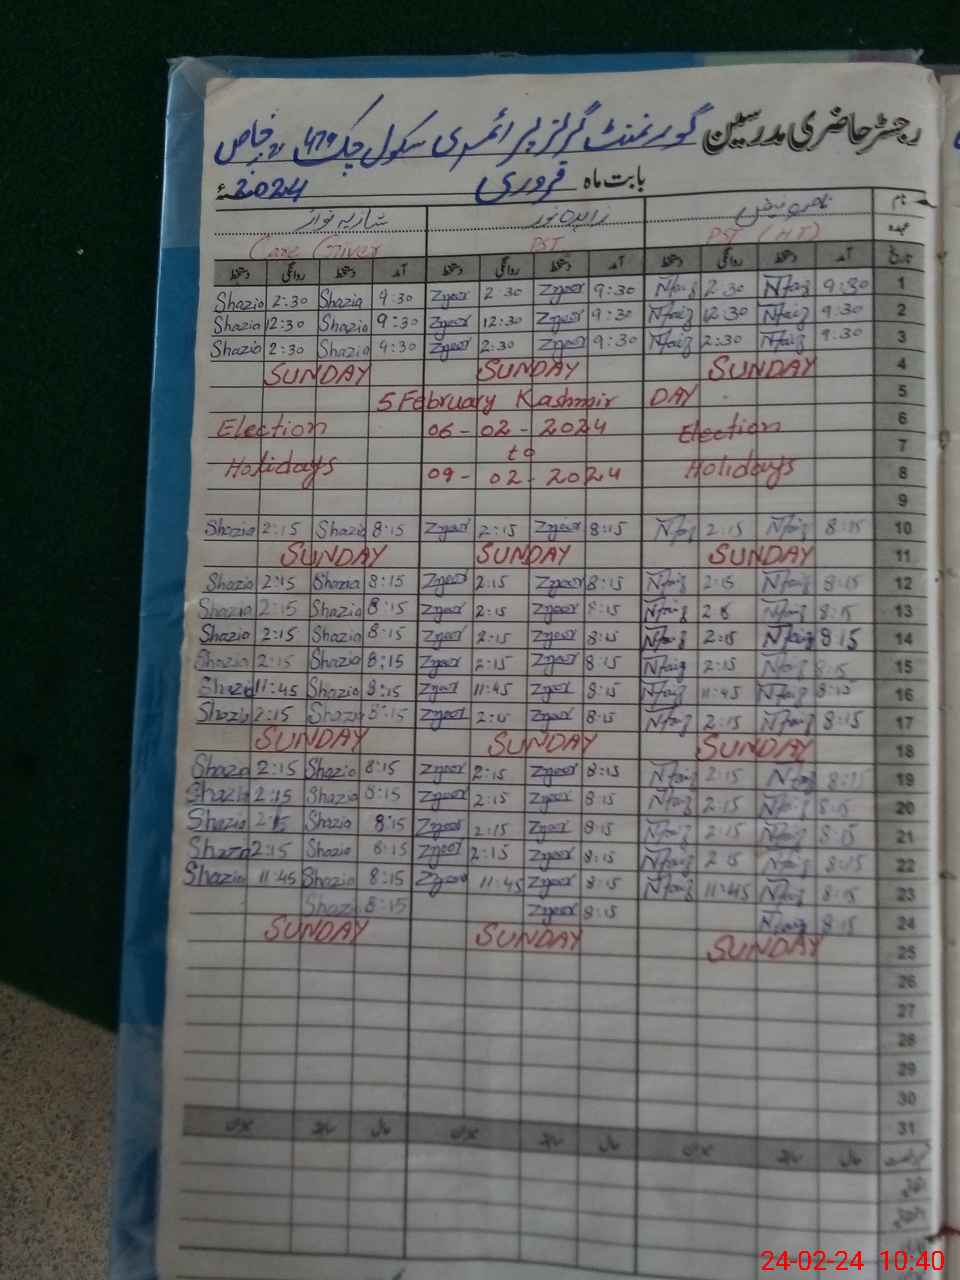 رجسٹر حاضری مدرسین گورنمنٹ گرلز پرائمری سکول چک
بابت ماہ فروری 2024ء
نام زاہدہ نور شازیہ نواز
عہدہ PST (H.T) PST Care Giver
تاریخ آمد دستخط روانگی دستخط آمد دستخط روانگی دستخط آمد دستخط روانگی دستخط
Shazia 2:30 Shazia 9:30 Znoor 2:30 Znoor 9:30 Nfaiz 2:30 Nfaiz 9:30 1
Shazia 12:30 Shazia 9:30 Znoor 12:30 Znoor 9:30 Nfaiz 12:30 Nfaiz 9:30 2
Shazia 2:30 Shazia 9:30 Znoor 2:30 Znoor 9:30 Nfaiz 2:30 Nfaiz 9:30 3
SUNDAY SUNDAY SUNDAY 4
5 February Kashmir DAY 5
Election 06-02-2024 Election 6
to 7
Holidays 09-02-2024 Holidays 8
9
Shazia 2:15 Shazia 8:15 Znoor 2:15 Znoor 8:15 Nfaiz 2:15 Nfaiz 8:15 10
SUNDAY SUNDAY SUNDAY 11
Shazia 2:15 Shazia 8:15 Znoor 2:15 Znoor 8:15 Nfaiz 2:15 Nfaiz 8:15 12
Shazia 2:15 Shazia 8:15 Znoor 2:15 Znoor 8:15 Nfaiz Nfaiz 8:15 13
Shazia 2:15 Shazia 8:15 Znoor 2:15 Znoor 8:15 Nfaiz 2:15 Nfaiz 8:15 14
Shazia 2:15 Shazia 8:15 Znoor 2:15 Znoor 8:15 Nfaiz 2:15 Nfaiz 8:15 15
Shazia 11:45 Shazia 8:15 Znoor 11:45 Znoor 8:15 Nfaiz 11:45 Nfaiz 8:15 16
Shazia 2:15 Shazia 8:15 Znoor 2:15 Znoor 8:15 Nfaiz 2:15 Nfaiz 8:15 17
SUNDAY SUNDAY SUNDAY 18
Shazia 2:15 Shazia 8:15 Znoor 2:15 Znoor 8:15 Nfaiz 2:15 Nfaiz 8:15 19
Shazia 2:15 Shazia 8:15 Znoor 2:15 Znoor 8:15 Nfaiz 2:15 Nfaiz 8:15 20
Shazia 2:15 Shazia 8:15 Znoor 2:15 Znoor 8:15 Nfaiz 2:15 Nfaiz 8:15 21
Shazia 2:15 Shazia 8:15 Znoor 2:15 Znoor 8:15 Nfaiz 2:15 Nfaiz 8:15 22
Shazia 11:45 Shazia 8:15 Znoor 11:45 Znoor 8:15 Nfaiz 11:45 Nfaiz 8:15 23
Shazia 8:15 Znoor 8:15 Nfaiz 8:15 24
SUNDAY SUNDAY SUNDAY 25
26
27
28
29
30
31
24-02-24 10:40